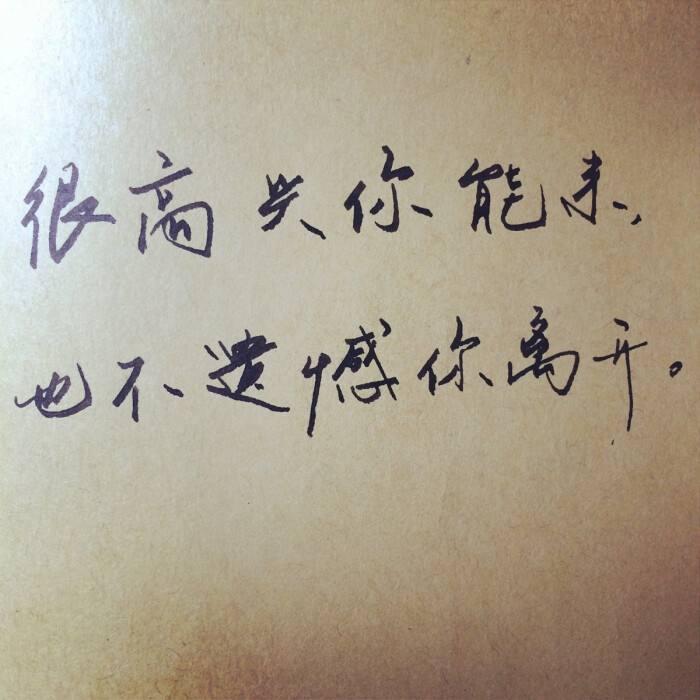 很高兴你能来,
也不遗憾你离开。